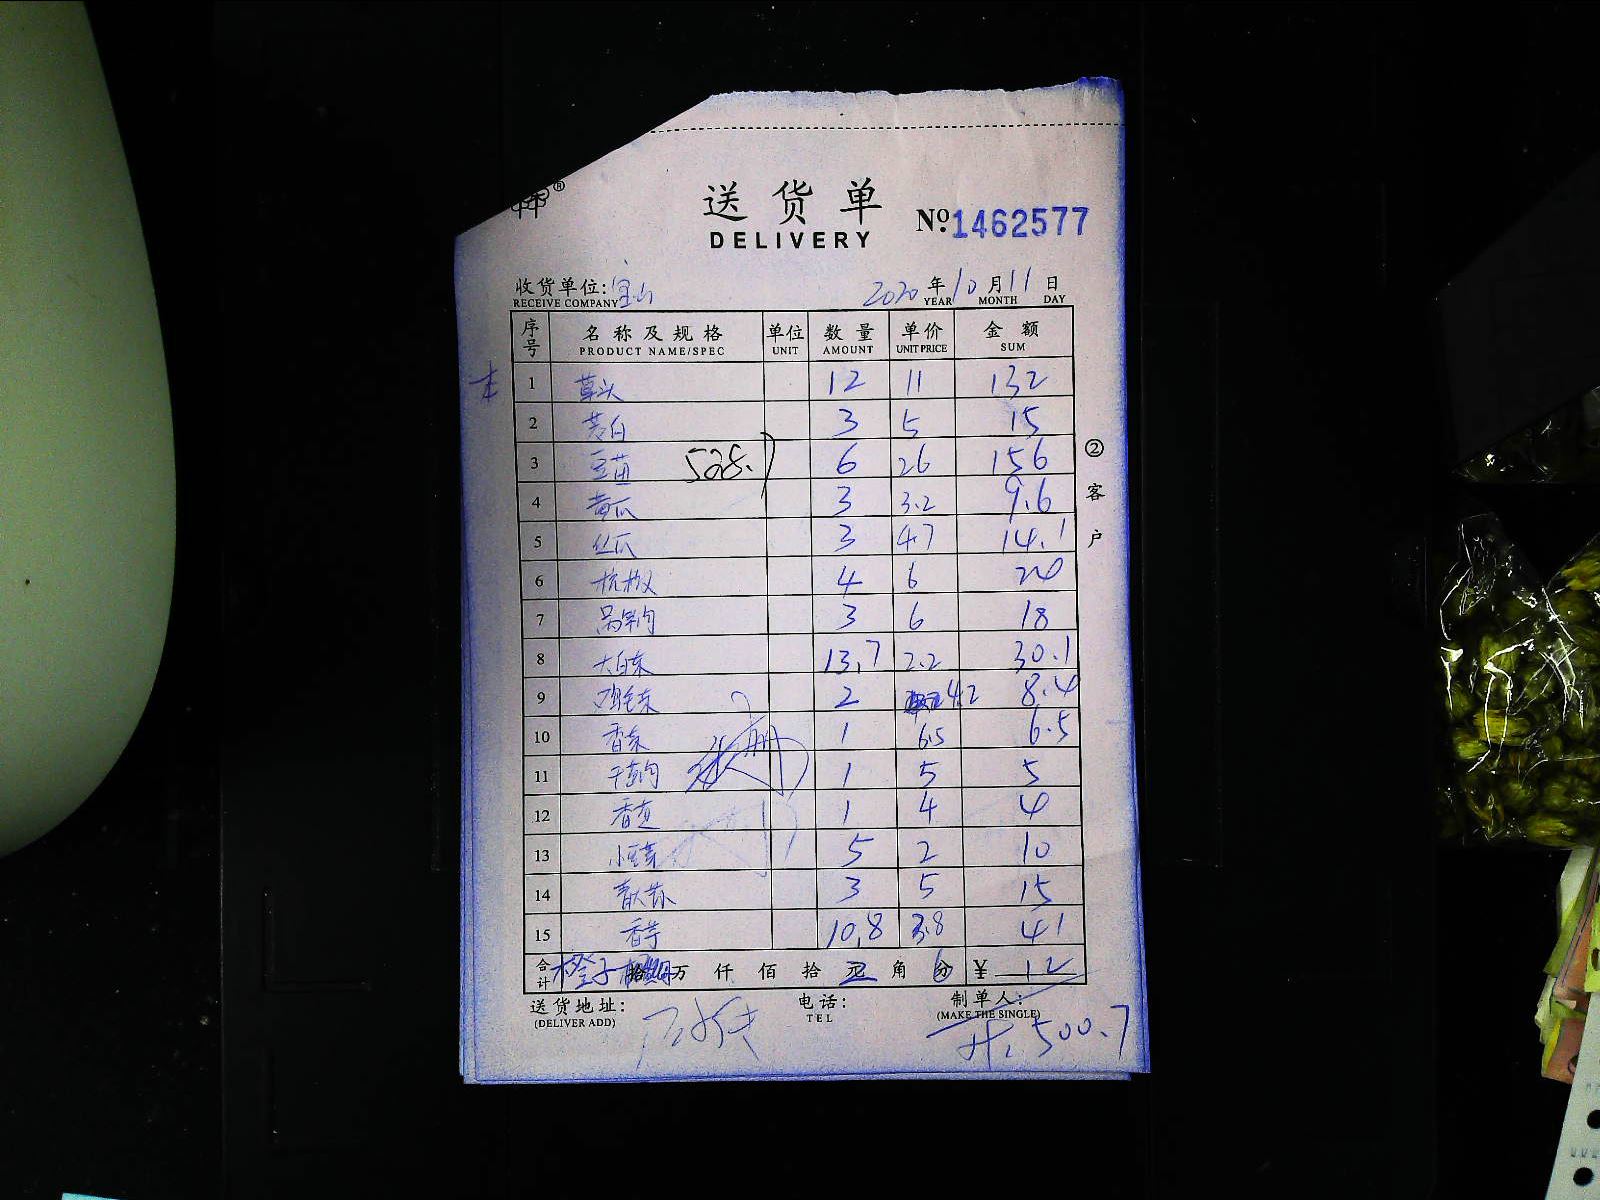 送货单 №1462577
DELIVERY
收货单位: 宝山 2020年10月11日
RECEIVE COMPANY YEAR MONTH DAY
序号 名称及规格 单位 数量 单价 金额
PRODUCT NAME/SPEC UNIT AMOUNT UNIT PRICE SUM
1 草头 12 11 132
2 茭白 3 5 15
3 豆苗 528. 6 26 156
4 黄瓜 3 3.2 9.6
5 丝瓜 3 4.7 14.1
6 杭椒 4 6 24
7 3 6 18
8 大白菜 13.7 2.2 30.1
9 鸡毛菜 2 4.2 8.4
10 香菜 1 6.5 6.5
11 1 5 5
12 1 4 4
13 小豆芽 5 2 10
14 3 5 15
15 香芋 10.8 3.8 41
合计 橙子 万 仟 佰 拾 2 角 6 ¥ 12
送货地址: 电话: 制单人:
(DELIVER ADD) TEL (MAKE THE SINGLE)
共: 500.7
② 客户